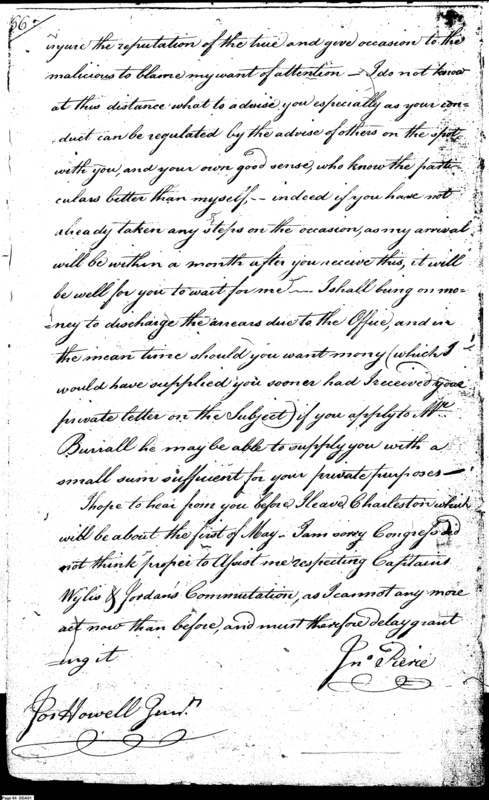 56
injure the reputation of the true and give occasion to the
malicious to blame my want of attention — I do not know
at this distance what to advise you especially as your con-
duct can be regulated by the advise of others on the spot
with you, and your own good sense, who know the parti-
culars better than myself, -- indeed if you have not
already taken any steps on the occasion, as my arrival
will be within a month after you receive this, it will
be well for you to wait for me — I shall bring on mo-
ney to discharge the arrears due to the Office, and in
the mean time should you want mony (which I
would have supplied you sooner had I received your
private letter on the Subject) if you apply to Mr.
Burrall he may be able to supply you with a
small sum sufficient for your private purposes —
I hope to hear from you before I leave Charleston which
will be about the first of May - I am sorry Congress did
not think proper to Assist me respecting Capitains
Wylis & Jordan's Commutation, as I cannot any more
act now than before, and must therefore delay grant
ing it
Jno. Pierce
Jos Howell Junr.
Page 64